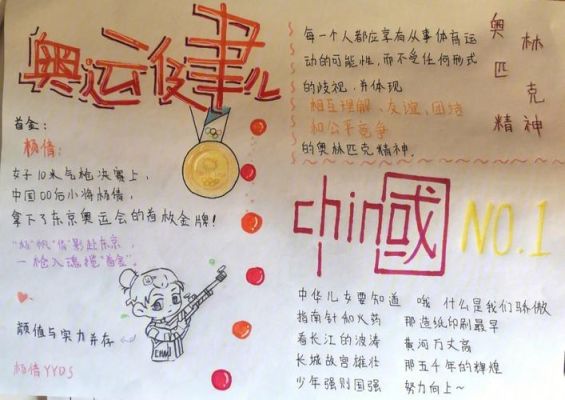 奥运健儿
首金:
杨倩:
女子10米气枪决赛上,
中国00后小将杨倩,
拿下了东京奥运会的首枚金牌!
一枪入魂揽"首金".
颜值与实力并存
杨倩YYDS
每一个人都应享有从事体育运
动的可能性,而不受任何形式
的歧视,并体现
相互理解、友谊、团结
和公平竞争
的奥林匹克精神.
奥林
匹克
精神
chin国
NO.1
中华儿女要知道 哦 什么是我们骄傲
指南针和火药 那造纸印刷最早
看长江的波涛 黄河万丈高
长城故宫雄壮 那五千年的辉煌
少年强则国强 努力向上~